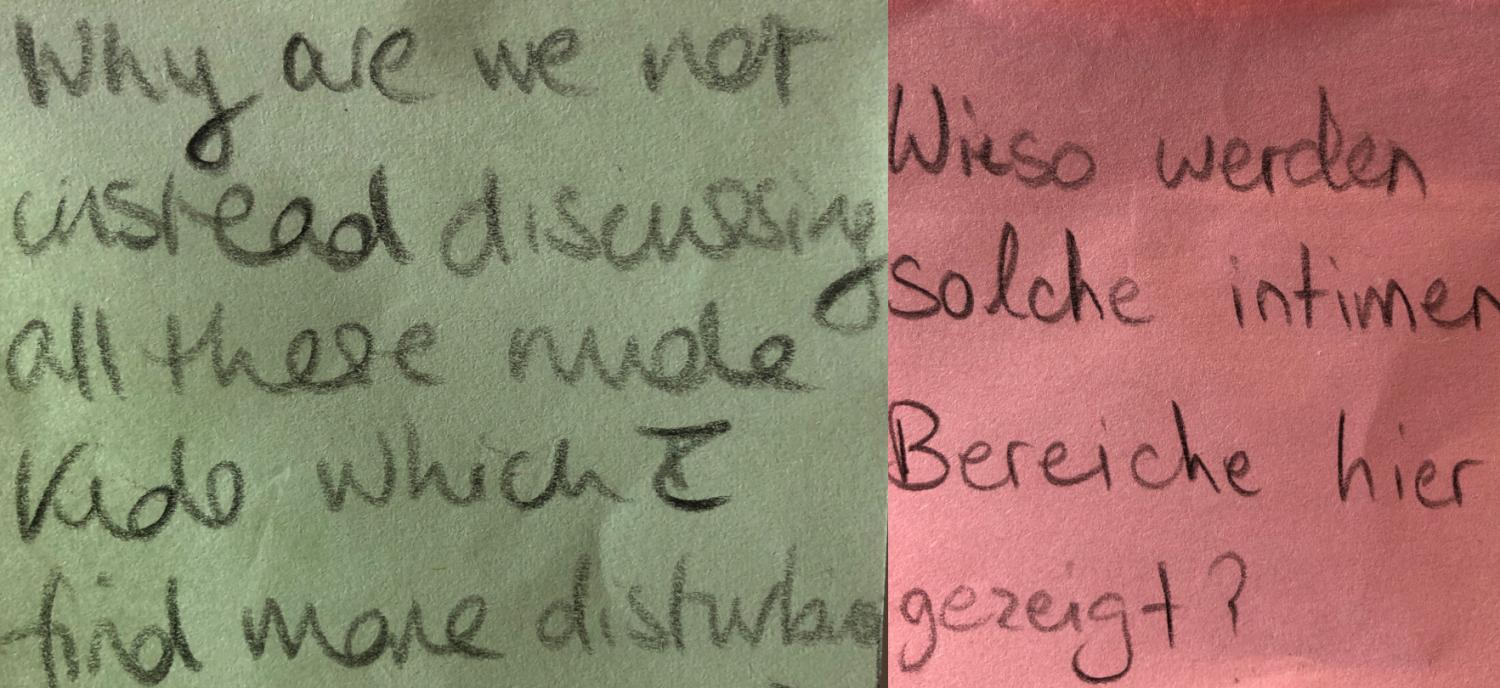 Why are we not
instead discussing
all these nude
Kids which I
find more disturbing
Wieso werden
solche intimen
Bereiche hier
gezeigt?